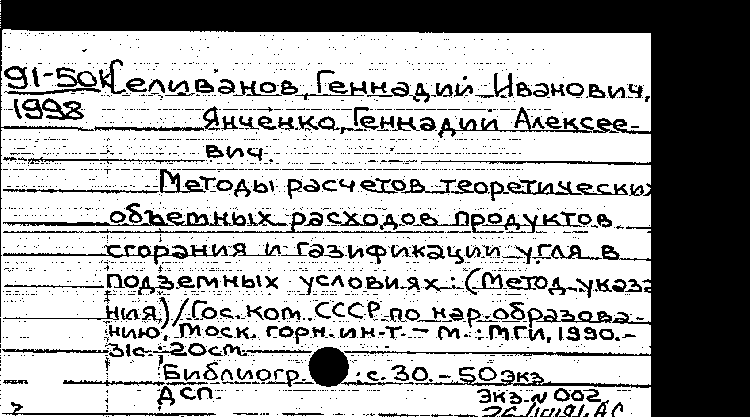 91-50к Селиванов, Геннадий Иванович,
1998 Янченко, Геннадий Алексее-
вич.
Методы расчетов теоретических
объемных расходов продуктов
сгорания и газификации угля в
подземных условиях: (Метод. указа
ния) / Гос. ком. СССР по нар. образова-
нию, Моск. горн. ин-т. - М.: МГИ, 1990.-
31с.; 20см.
Библиогр.: с. 30. - 50 экз.
ДСП. экз. N 002